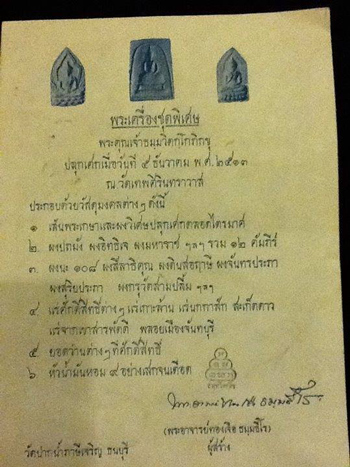 พระเครื่องชุดพิเศษ
พระคุณเจ้าธมฺมวิตกฺโกภิกขุ
ปลุกเศกเมื่อวันที่ ๕ ธันวาคม พ.ศ.๒๕๑๓
ณ วัดเทพศิรินทราวาส
ประกอบด้วยวัสดุมงคลต่างๆดังนี้
๑ เส้นพระเกษาและผงวิเศษปลุกเศกตลอดไตรมาศ
๒. ผงปถมัง ผงอิทธิเจ ผงมหาราช ฯลฯ รวม ๑๒ คัมภีร์
๓. ผงนะ ๑๐๘ ผงสีลาธิคุณ ผงดินสอฤาษี ผงจันทรประภา
ผงสุริยประภา ผงกรุวัดสามปลื้ม ฯลฯ
๔ แร่ศักดิ์สิทธิ์ต่างๆ แร่เกาะล้าน แร่นกทาส้ก สะเก็ดดาว
แร่จากเขาสารพัดดี พลอยเมืองจันทบุรี
๕ ยอดว่านต่างๆที่ศักดิ์สิทธิ์
๖ หัวน้ำมันหอม ๙ อย่างเสกจนเดือด
(พระอาจารย์ทองเจือ ธมฺมธีโร)
วัดปากน้ำภาษีเจริญ ธนบุรี ผู้สร้าง